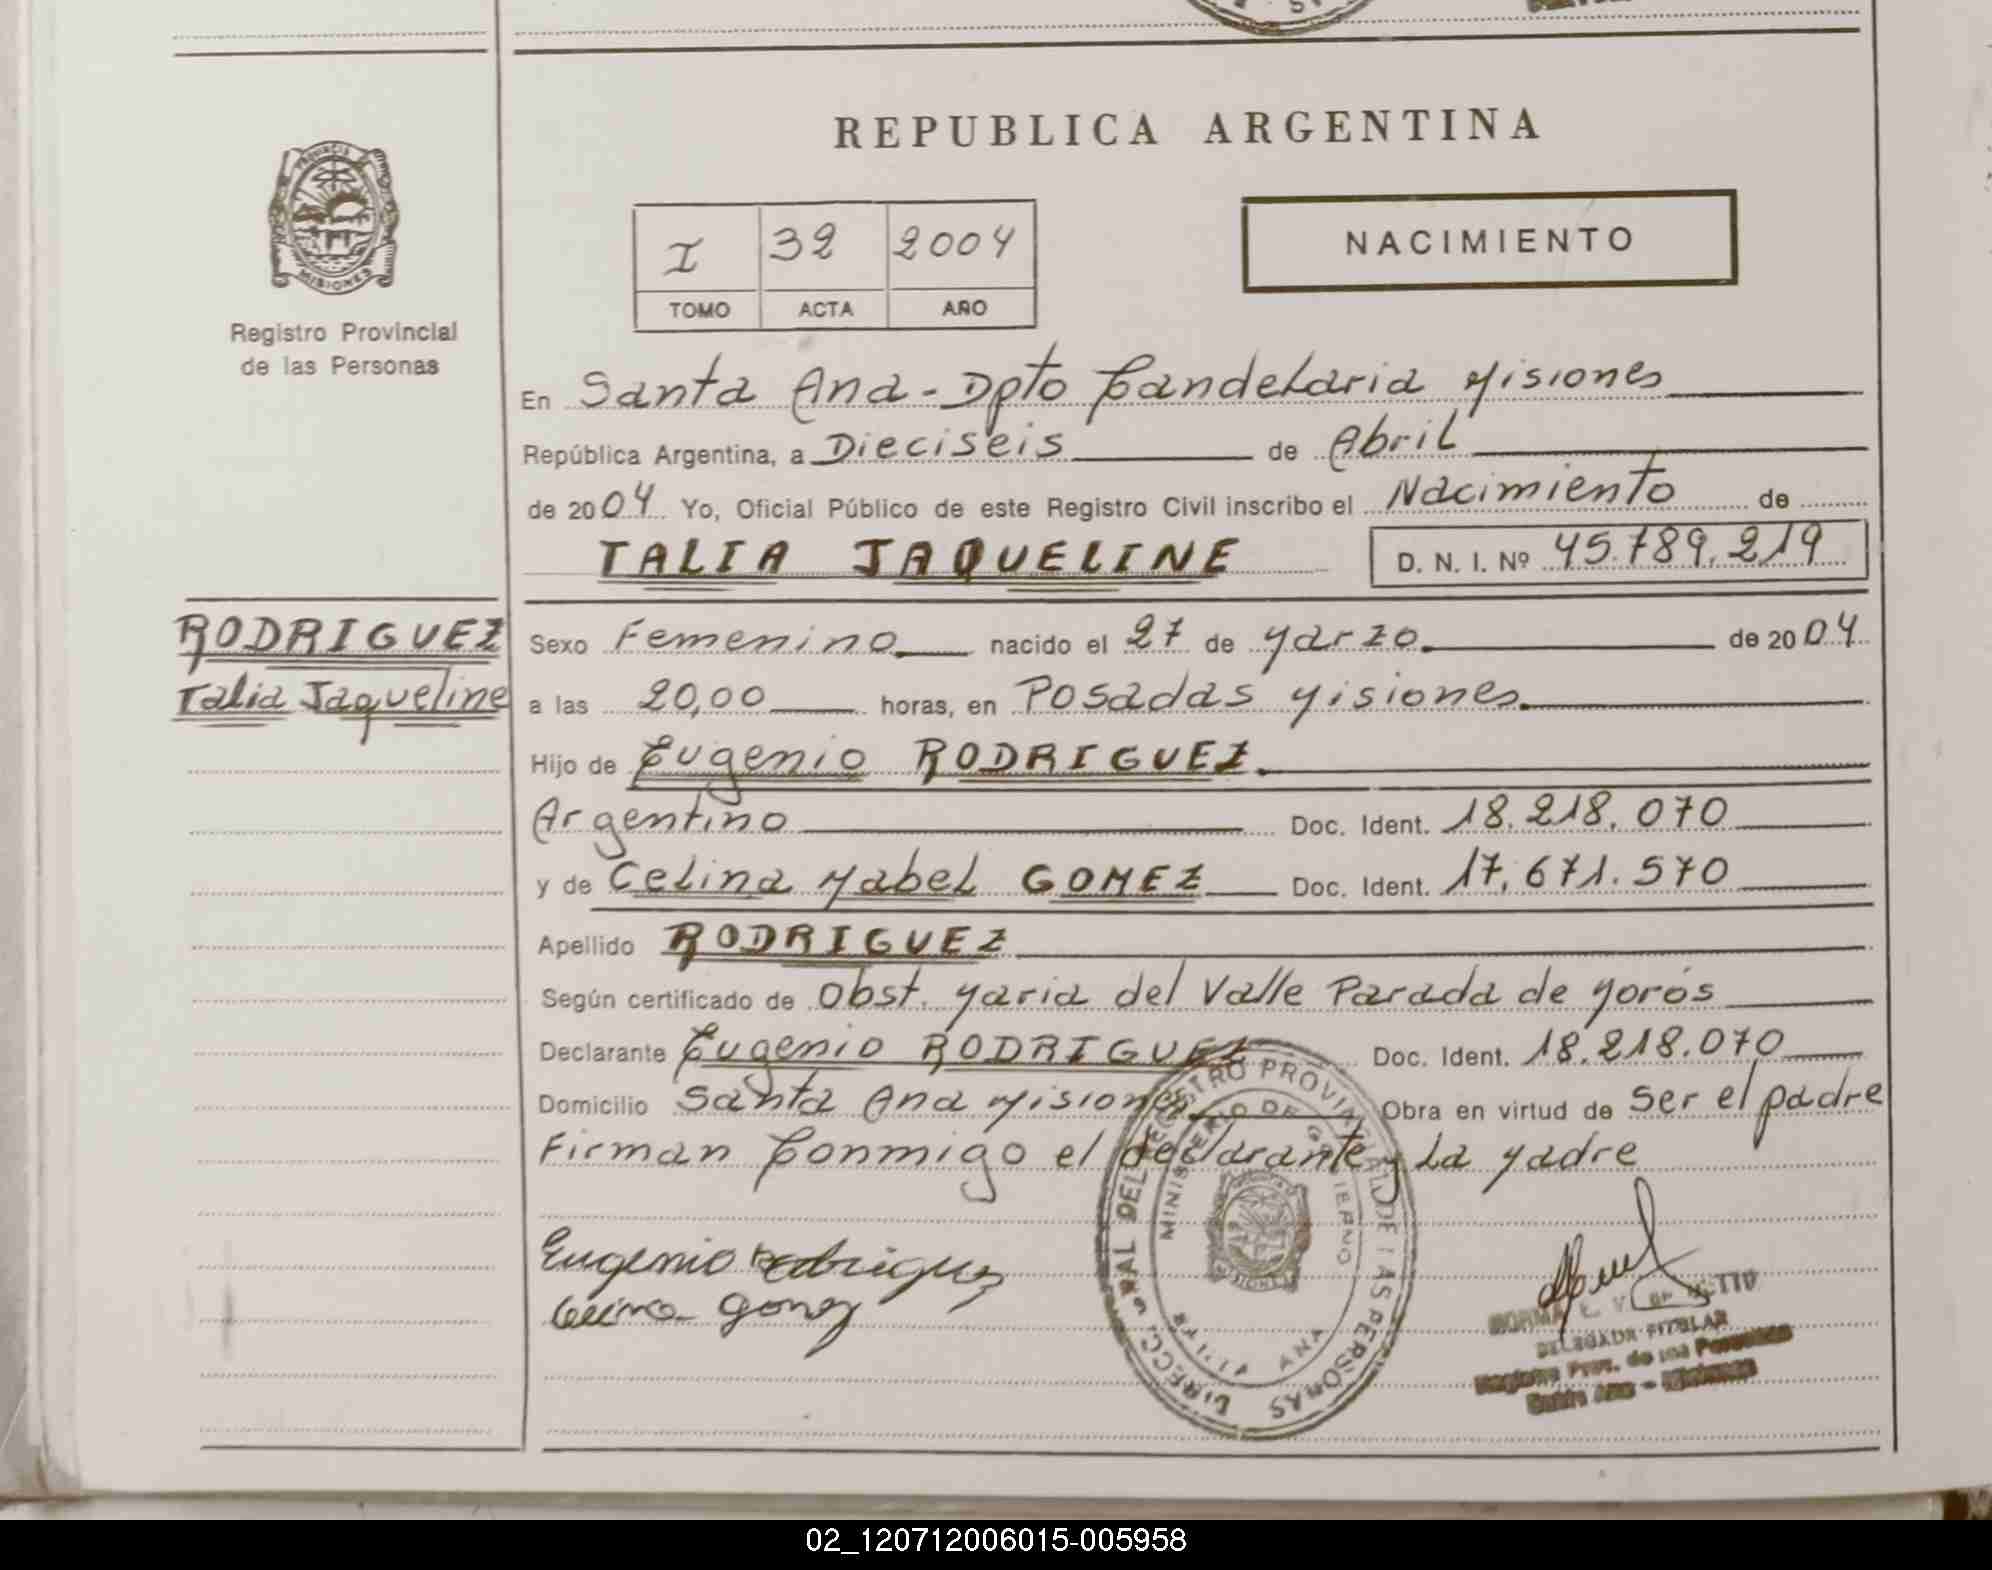 REPUBLICA ARGENTINA
PROVINCIA
MISIONES
Registro Provincial
de las Personas
I 32 2004
TOMO ACTA AÑO
NACIMIENTO
En Santa Ana - Dpto Candelaria Misiones
República Argentina, a Dieciseis de Abril
de 2004 Yo, Oficial Público de este Registro Civil inscribo el Nacimiento de
TALIA JAQUELINE D. N. I. Nº 45.789.219
RODRIGUEZ
Talia Jaqueline
Sexo Femenino nacido el 27 de Marzo de 2004
a las 20,00 horas, en Posadas Misiones
Hijo de Eugenio RODRIGUEZ
Argentino Doc. Ident. 18.218.070
y de Celina Mabel GOMEZ Doc. Ident. 17.671.570
Apellido RODRIGUEZ
Según certificado de Obst. Maria del Valle Parada de Morós
Declarante Eugenio RODRIGUEZ Doc. Ident. 18.218.070
Domicilio Santa Ana Misiones Obra en virtud de Ser el padre
Firman Conmigo el declarante y La Madre
Eugenio Rodriguez
Celina Gomez
DEL REGISTRO PROVINCIAL DE LAS PERSONAS
MINISTERIO DE GOBIERNO
MISIONES
ANA
NORMA
DELEGADA TITULAR
Registro Prov. de las Personas
Santa Ana - Misiones
02_120712006015-005958